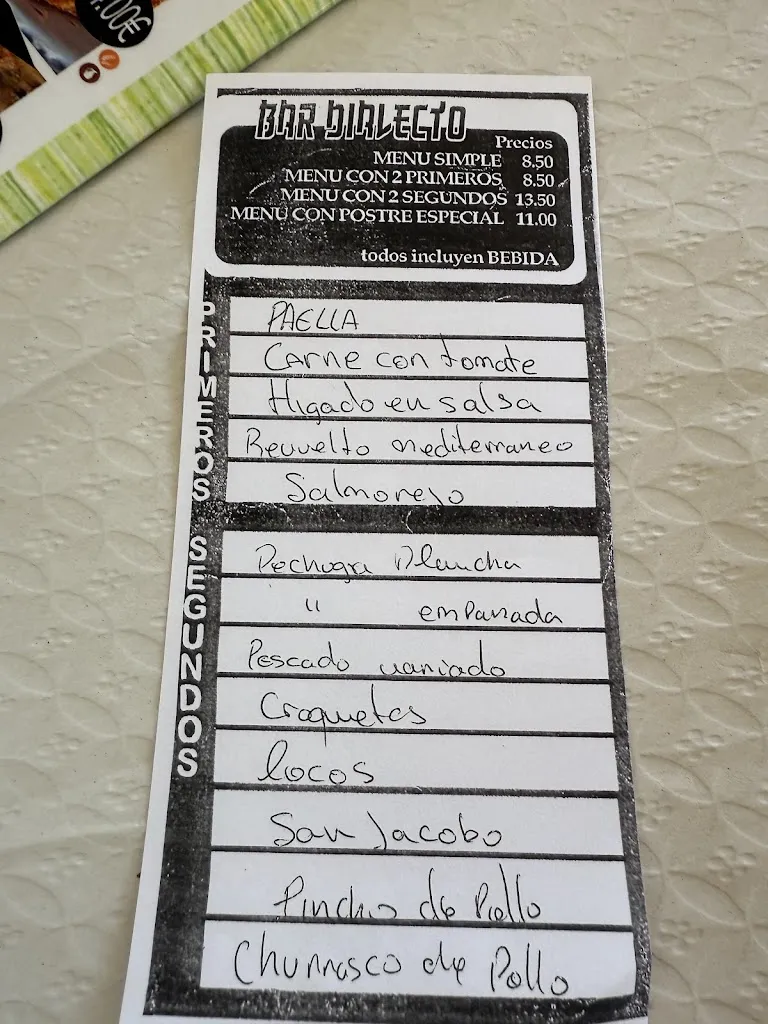 .00€
BAR DIALECTO
Precios
MENU SIMPLE 8.50
MENU CON 2 PRIMEROS 8.50
MENU CON 2 SEGUNDOS 13.50
MENU CON POSTRE ESPECIAL 11.00
todos incluyen BEBIDA
PRIMEROS
PAELLA
Carne con tomate
Higado en salsa
Revuelto mediterraneo
Salmorejo
SEGUNDOS
Pechuga Plancha
" empanada
Pescado variado
Croquetas
locos
San Jacobo
Pincho de Pollo
Churrasco de Pollo